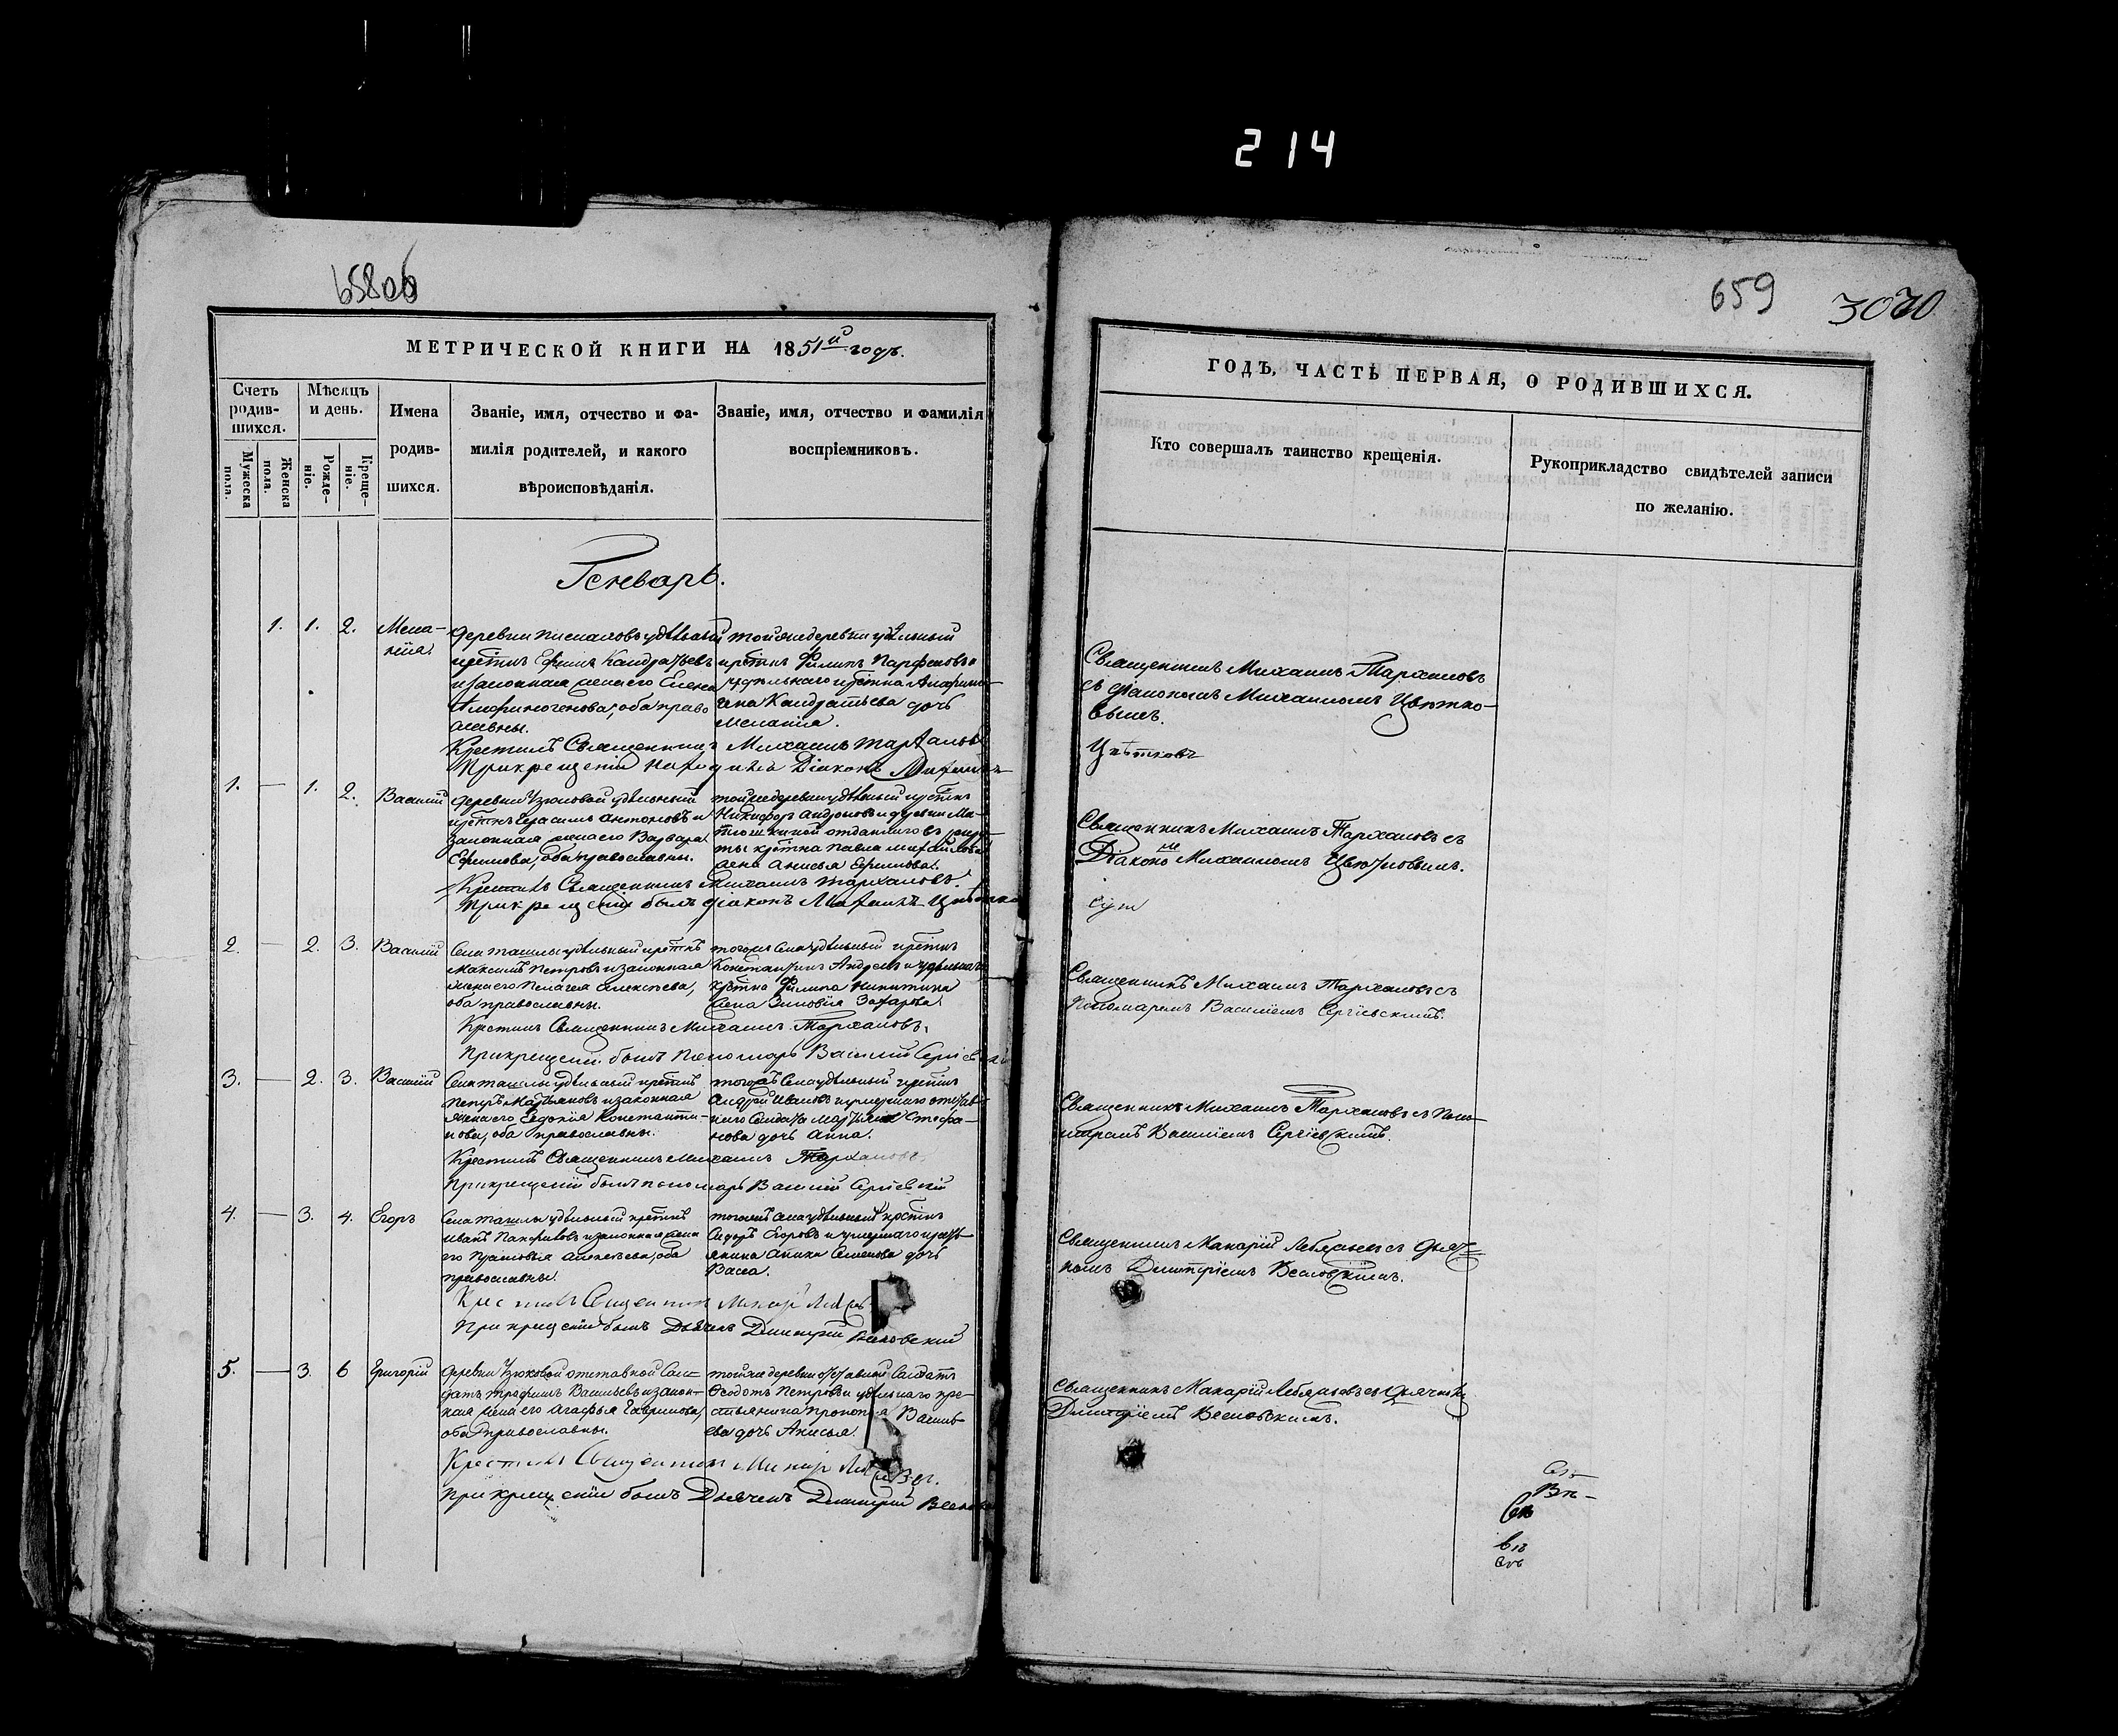 214
658об
659
3020
МЕТРИЧЕСКОЙ КНИГИ НА 1851й годъ.
Счетъ родив-шихся.
Мужеска пола.
Женска пола.
Мѣсяцъ и день.
Рожде-ніе.
Креще-ніе.
Имена родив-шихся.
Званіе, имя, отчество и фа-
милія родителей, и какого
вѣроисповѣданія.
Званіе, имя, отчество и фамилія
воспріемниковъ.
Генварь.
1. 1. 2. Мела-
нія.
деревни удѣльный
крестнъ Ефимъ Кандратьевъ
и законная жена его Елена
Анфиногенова; оба право
славны.
тойже деревни удѣльный
крестнъ Филипъ Парфеновъ и
удѣльнаго крестна
гена Кандратьева дочь
Мелания.
Крестилъ Священникъ Михаилъ Тархановъ
При крещении находился Діаконъ Михаилъ
1. — 1. 2. Василій
деревни Узюковой удѣльный
крестнъ Герасимъ Антоновъ и
законная жена его Варвара
Ефимова, оба православны.
тойже деревни удѣльный крестнъ
Никифоръ Андроновъ и деревни Ми-
отданнаго въ
ты крестна Павла Михайлова
жена Анисья Ефимова.
Крестилъ Священникъ Михаилъ Тархановъ.
При крещеніи былъ діаконъ Михаилъ Цвѣтков
2. — 2. 3. Василій
Села Ташлы удѣльный крестнъ
Максимъ Петровъ и законная
жена его Пелагея Алексѣева,
оба православны.
тогоже Села удѣльный крестнъ
Константинъ Андреевъ и удѣльнаго
крестна Филипа Никитина
жена Зиновія Захарова.
Крестилъ Священникъ Михаилъ Тархановъ.
При крещеніи былъ Пономарь Василій Сергіевскій
3. — 2. 3. Василій
Села Ташлы удѣльный крестнъ
Петръ Мартьяновъ и законная
жена его Евдокія Константи-
нова, оба православны.
тогожъ Села удѣльный крестнъ
Андрей Ивановъ и умершаго отстав-
наго Солдата Стефа-
нова дочь Анна.
Крестилъ Священникъ Михаилъ Тархановъ.
При крещеніи былъ пономарь Василій Сергіевскій
4. — 3. 4. Егоръ
Села Ташлы удѣльный крестнъ
Иванъ Панфиловъ и законная жена
его Алексѣева, оба
православны.
тогожъ Села удѣльный крестнъ
Сидоръ Егоровъ и умершаго кресть-
янина Аники Семенова дочь
Васса.
Крестилъ Священникъ Макарій
При крещеніи былъ Дьячекъ Димитрій Веселовский
5. — 3. 6 Григорій
деревни Узюковой отставной Сол-
датъ Трофимъ Васильевъ и закон-
ная жена его Агафья Гаврилова,
оба православны.
тойже деревни отставной Солдатъ
Ѳеодотъ Петровъ и удѣльнаго кре-
стьянина Прокопья Василь-
ева дочь Анисья.
Крестилъ Священникъ Макарій
При крещеніи былъ Дьячекъ Димитрій
ГОДЪ, ЧАСТЬ ПЕРВАЯ, О РОДИВШИХСЯ.
Кто совершалъ таинство крещенія.
Рукоприкладство свидѣтелей записи
по желанію.
Священникъ Михаилъ Тархановъ
съ діакономъ Михаиломъ Цвѣтко-
вымъ.
Цвѣтковъ
Священникъ Михаилъ Тархановъ съ
Діакономъ Михаиломъ Цвѣтковымъ.
Священникъ Михаилъ Тархановъ съ
Пономаремъ Василіемъ Сергіевскимъ.
Священникъ Михаилъ Тархановъ съ Поно-
маремъ Василіемъ Сергіевскимъ.
Священникъ Макарій Лебяжьевъ съ Дьяч-
комъ Димитріемъ Веселовскимъ.
Священникъ Макарій Лебяжьевъ съ Дьячкомъ
Димитріемъ Веселовскимъ.